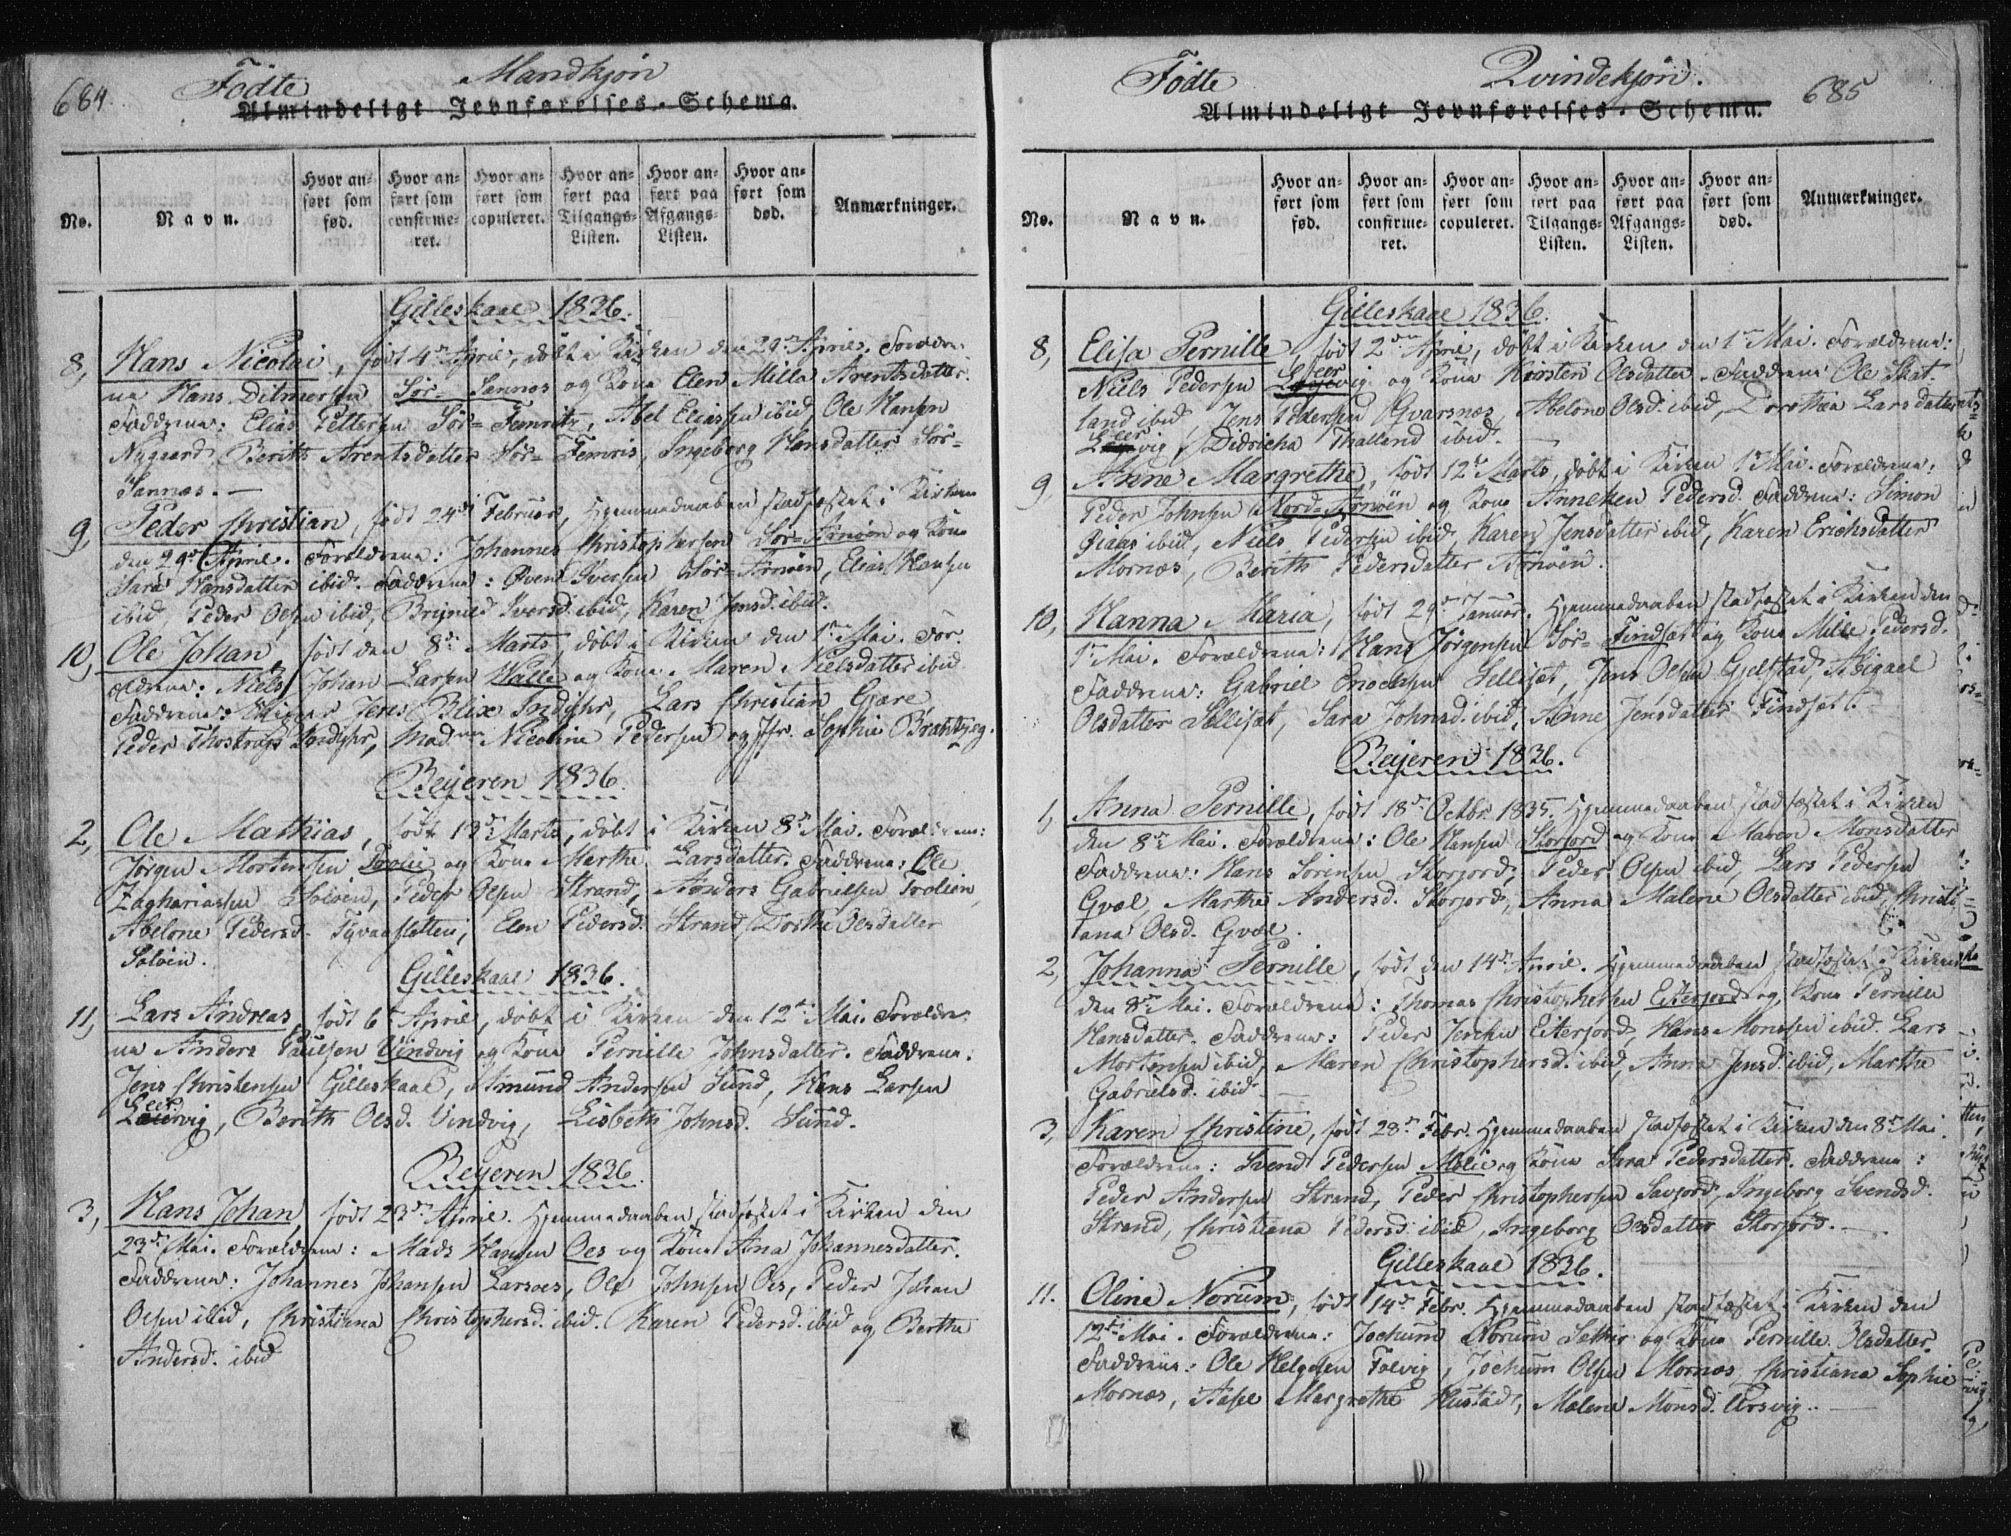 684.
Födte Mandkjön
Almindeligt Jevnførelses-Schema.
No.
Navn.
Hvor anført som fød.
Hvor anført som confirmeret.
Hvor anført som copuleret.
Hvor anført paa Tilgangs-Listen.
Hvor anført paa Afgangs-Listen.
Hvor anført som død.
Anmærkninger.
Gilleskaal 1836.
8, Hans Nicolai, födt 4de April, döbt i Kirken den 29de April. Forældre-
ne Hans Ditmersen Sör-Sannæs og Kone Elen Milla Arentsdatter.
Faddrene: Elias Pettersen Sör-Femris, Abel Eliassen ibid, Ole Hansen
Nygaard, Berith Arentsdatter Sör-Femris, Ingeborg Hansdatter Sör-
Sannæs. —
9, Peder Christian, födt 24de Februar, Hjemmedaaben stadfæstet i Kirken
den 29de April. Forældrene: Johannes Christophersen Sör-Arnöen og Kone
Sara Hansdatter ibid. Faddrene: Iversen Sör-Arnöen, Elias Hansen
ibid, Peder Olsen ibid, Brynild Iversd. ibid, Karen Jensd. ibid.
10, Ole Johan födt den 8de Marts, döbt i Kirken den 1ste Mai. For-
ældrene: Niels Johan Larsen Walle og Kone Maren Nielsdatter ibid
Faddrene: Jens Blix Lars Christian Gjære
Peder Thostrup Madme Nicoline Pedersen og Jfr. Sophie
Beijeren 1836.
2, Ole Mathias, födt 12de Marts, döbt i Kirken 8de Mai. Forældrene:
Jørgen Mortensen Trolie og Kone Marthe Larsdatter. Faddrene: Ole
Zachariassen Solöen, Peder Olsen Strand, Anders Gabrielsen Trolien,
Abelone Pedersd. Tyvaasletten, Elen Pedersd. Strand, Dorthe Olsdatter
Solöen.
Gilleskaal 1836.
11, Lars Andreas, födt 6te April, döbt i Kirken den 12te Mai. Forældre-
ne Anders Paulsen Vindvig og Kone Pernille Johnsdatter. Faddrene:
Jens Christensen Gilleskaal, Amund Andersen Sund, Hans Larsen
Leervig, Berith Olsd. Vindvig, Lisbeth Johnsd. Sund.
Beijeren 1836.
3, Hans Johan, födt 23de April. Hjemmedaaben stadfæstet i Kirken den
23de Mai. Forældrene: Mads Hansen Oes og Kone Ana Johannesdatter.
Faddrene: Johannes Johansen Larsoes, Ole Johnsen Oes, Peder Johan
Olsen ibid, Christiana Christophersd. ibid. Karen Pedersd. ibid og Berthe
Andersd. ibid
685
Födte Qvindekjön.
Almindeligt Jevnførelses-Schema.
No.
Navn.
Hvor anført som fød.
Hvor anført som confirmeret.
Hvor anført som copuleret.
Hvor anført paa Tilgangs-Listen.
Hvor anført paa Afgangs-Listen.
Hvor anført som død.
Anmærkninger.
Gilleskaal 1836.
8, Elisa Pernille, födt 2den April, döbt i Kirken den 1ste Mai. Forældrene:
Niels Pedersen Leervig og Kone Kirsten Olsdatter. Faddrene Ole Skat-
land ibid, Jens Pedersen Gvarsnæs, Abelone Olsd. ibid, Dorothea Larsdatter
Leervig, Didricha Thallend ibid. —
9, Anne Margrethe, födt 12te Marts, döbt i Kirken 1ste Mai. Forældrene:
Peder Johnsen Nord-Arnöen og Kone Anneken Pedersd. Faddrene: Simon
Qvaas ibid, Niels Pedersen ibid, Karen Jensdatter ibid, Karen Erichsdatter
Mornæs, Berith Pedersdatter Arnöen.
10, Hanna Maria, födt 29de Januar. Hjemmedaaben stadfæstet i Kirken den
1ste Mai. Forældrene: Hans Jörgensen Sör-Findset og Kone Mille Pedersd.
Faddrene: Gabriel Enochsen Selliset, Jens Olsen Gjelstad, Abigael
Olsdatter Selliset, Sara Johnsd. ibid, Anne Jensdatter Findset.
Beijeren 1836.
1, Anna Pernille, födt 18de Octbr. 1835. Hjemmedaaben stadfæstet i Kirken
den 8de Mai. Forældrene: Ole Hansen Storjord og Kone Maren Monsdatter
Faddrene: Hans Sörensen Storjord, Peder Olsen ibid, Lars Pedersen
Gvæl, Marthe Andersd. Storjord, Anna Malene Olsdatter ibid, Christi-
ana Olsd. Gvæl.
2, Johanna Pernille, födt den 14de April. Hjemmedaaben stadfæstet i Kirken
den 8de Mai. Forældrene: Thomas Christophersen Eiterjord og Kone Pernille
Hansdatter. Faddrene: Peder Jensen Eiterjord, Hans Monssen ibid. Lars
Mortensen ibid, Maren Christophersd. ibid, Anna Jensd. ibid, Marthe
Gabrielsd. ibid. —
3, Karen Christine, födt 28de Febr. Hjemmedaaben stadfæstet i Kirken den 8de Mai.
Forældrene: Svend Pedersen Molie og Kone Sara Pedersdatter. Faddrene:
Peder Andersen Strand, Peder Christophersen Savjord, Ingeborg Svendsd.
Strand, Christiana Pedersd. ibid, Ingeborg Olsdatter Storjord. —
Gilleskaal 1836.
11. Oline Norum, födt 14de Febr. Hjemmedaaben stadfæstet i Kirken den
12te Mai. Forældrene: Jochum Norum Sætter og Kone Pernille Olsdatter.
Faddrene: Ole Helgesen Falvig, Jochum Olsen Mornæs, Christiana Sophie
Mornæs, Aasel Margrethe Hustad, Malene Monsd.